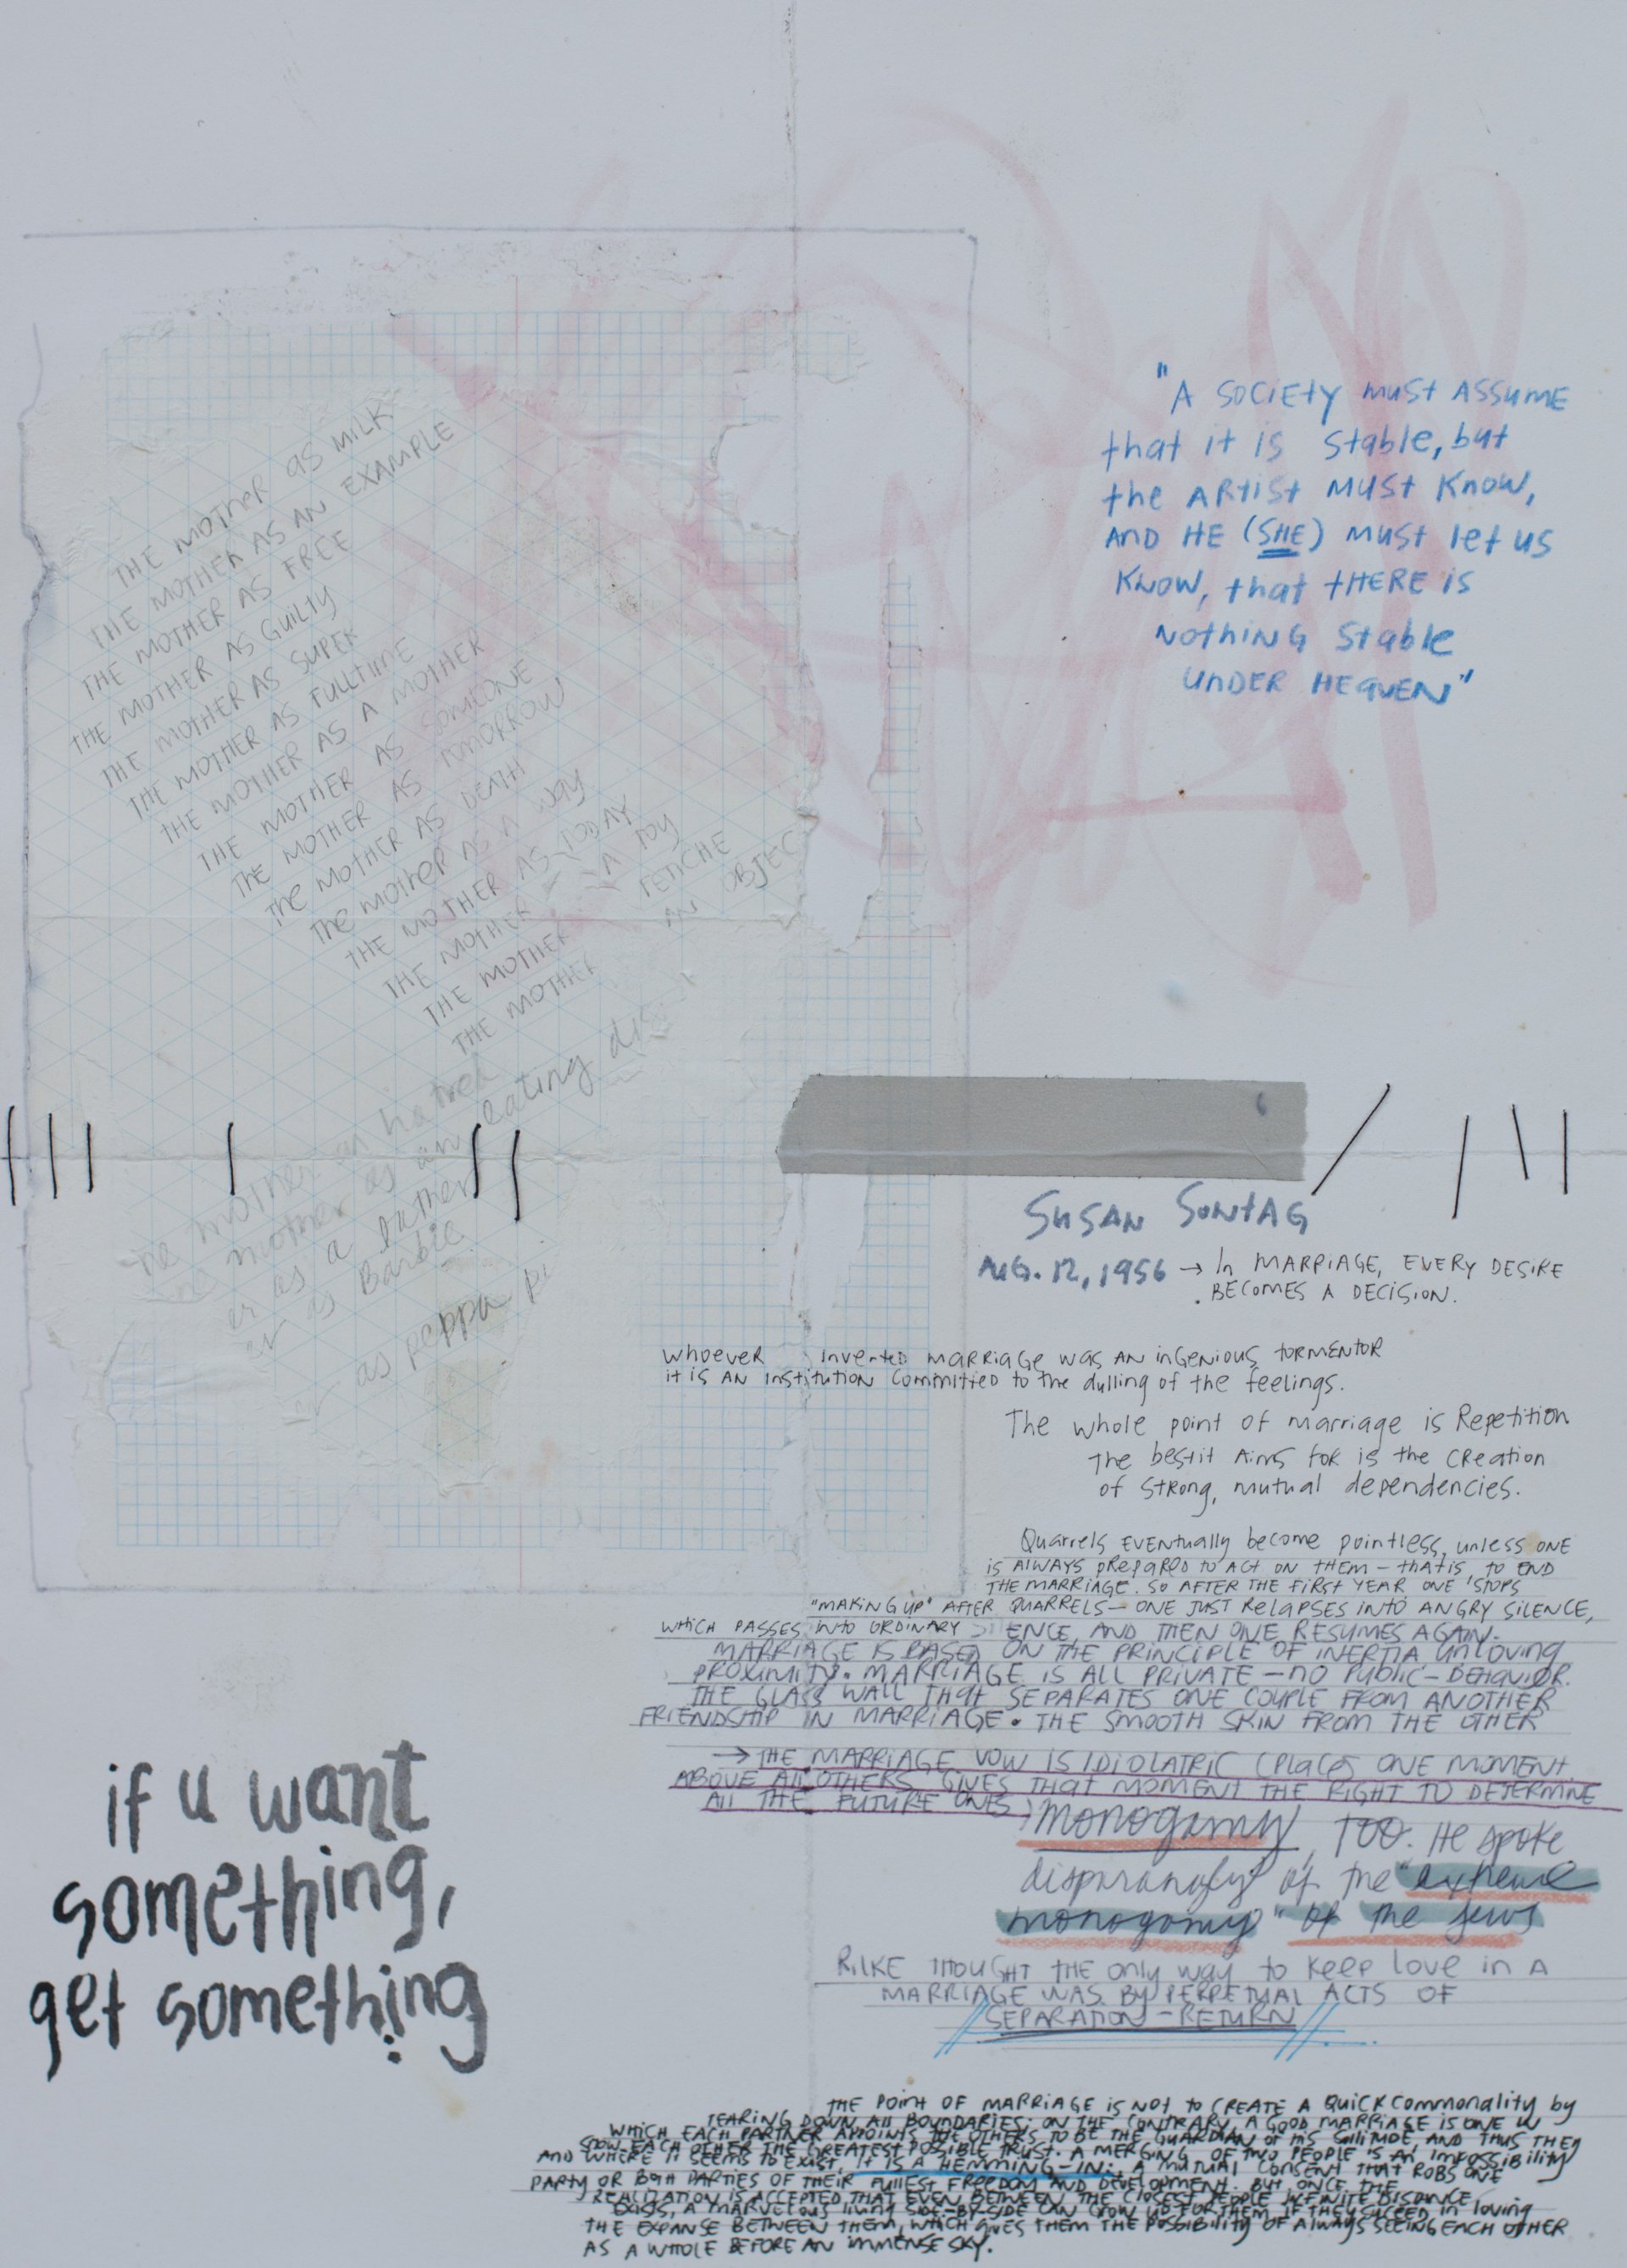 THE MOTHER AS MILK
THE MOTHER AS AN EXAMPLE
THE MOTHER AS FREE
THE MOTHER AS GUILTY
THE MOTHER AS SUPER
THE MOTHER AS FULLTIME
THE MOTHER AS A MOTHER
THE MOTHER AS SOMEONE
THE MOTHER AS TOMORROW
The MOTHER AS DEATH
The MOTHER AS A WAY
THE MOTHER AS TODAY
THE MOTHER A TOY
THE MOTHER FETICHE
THE MOTHER AN OBJEC
he mother an hatred
mother as an eating dis
er as a father
er as Barbie
as peppa pi
"A SOCIETY must ASSUME
that it is stable, but
the ARtist MUST KNOW,
AND HE (SHE) must let us
KNOW, that tHERE is
NOthING stable
UNDER HEAVEN"
6
SUSAN SONTAG
AUG. 12, 1956 → In MARRIAGE, EVERY DESIRE
BECOMES A DECISION.
Whoever invented marriage was AN ingenious tormentor
it is AN institution committed to the dulling of the feelings.
The whole point of marriage is Repetition
The best it Aims FOR is the CReation
of strong, mutual dependencies.
Quarrels EVENTUALLY become pointless, unless ONE
is ALWAYS prepared to ACT ON THEM – that is TO END
THE MARRIAGE. SO AFTER THE FIRST YEAR ONE 'STOPS
"MAKING UP" AFTER QUARRELS – ONE JUST RELAPSES INTO ANGRY SILENCE,
WHICH PASSES INTO ORDINARY SILENCE, AND THEN ONE RESUMES AGAIN.
MARRIAGE IS BASED ON THE PRINCIPLE OF INERTIA UNLOVING
PROXIMITY. MARRIAGE IS ALL PRIVATE – NO PUBLIC – BEHAVIOR.
THE GLASS WALL THAT SEPARATES ONE COUPLE FROM ANOTHER
FRIENDSHIP IN MARRIAGE. THE SMOOTH SKIN FROM THE OTHER
→ THE MARRIAGE VOW IS IDIOLATRIC (PLACES ONE MOMENT
ABOVE ALL OTHERS, GIVES THAT MOMENT THE RIGHT TO DETERMINE
All THE FUTURE ONES) monogamy, TOO. He spoke
disparangly of the "extreme
monogamy" of the jews
RILKE THOUGHT THE ONLY WAY to KEEP LOVE IN A
MARRIAGE WAS BY PERPETUAL ACTS OF
SEPARATION – RETURN
if u want
something,
get something
THE POINT OF MARRIAGE IS NOT to CREATE A QUICK COMMONALITY by
TEARING DOWN All BOUNDARIES; ON THE CONTRARY, A GOOD MARRIAGE IS ONE IN
WHICH EACH PARTNER APPOINTS THE OTHERS TO BE THE GUARDIAN OF HIS SOLITUDE, AND THUS THEY
SHOW EACH OTHER THE GREATEST POSSIBLE TRUST. A MERGING OF TWO PEOPLE IS AN IMPOSSIBILITY
AND WHERE IT SEEMS TO EXIST, IT IS A HEMMING-IN: A MUTUAL CONSENT THAT ROBS ONE
PARTY OR BOTH PARTIES OF THEIR FULLEST FREEDOM AND DEVELOPMENT. BUT ONCE THE
REALIZATION IS ACCEPTED THAT EVEN BETWEEN THE CLOSEST PEOPLE INFINITE DISTANCE
EXISTS, A MARVELOUS living SIDE-BY-SIDE CAN GROW UP FOR THEM IF THEY SUCCEED in loving
THE EXPANSE BETWEEN THEM, WHICH GIVES THEM THE POSSIBILITY OF ALWAYS SEEING EACH OTHER
AS A WHOLE BEFORE AN IMMENSE SKY.